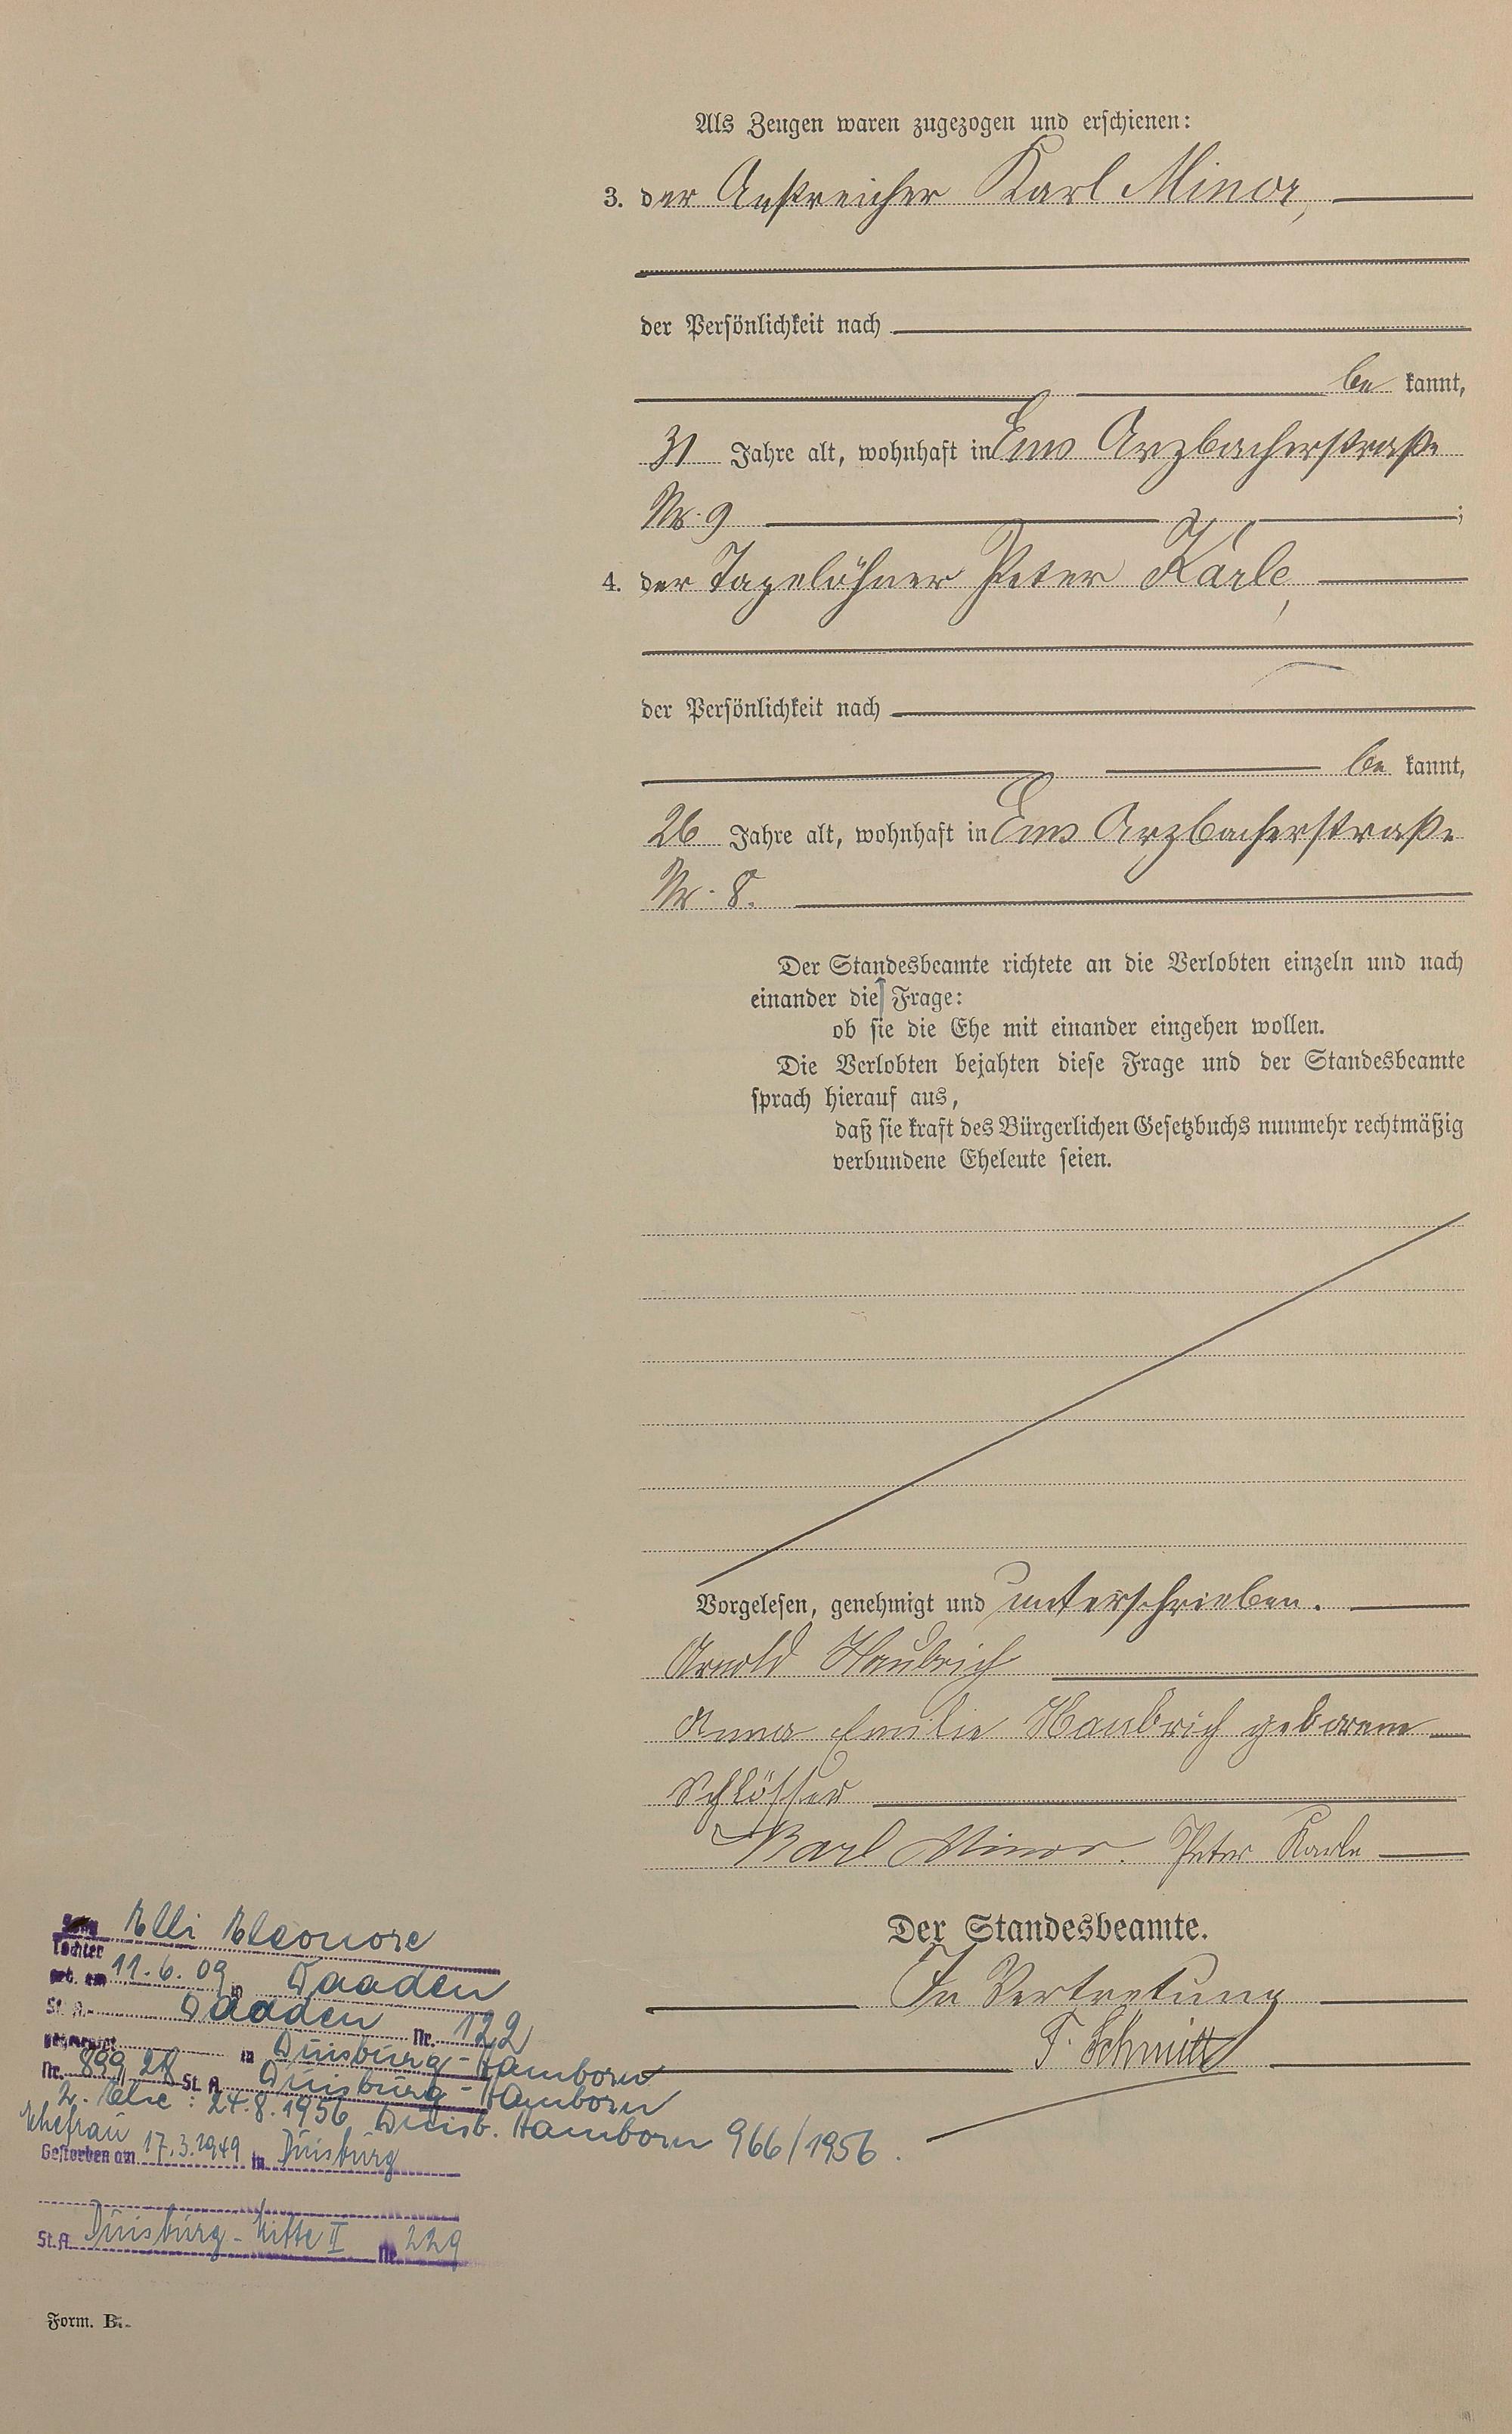 Als Zeugen waren zugezogen und erschienen:
3. der Anstreicher Karl Minor,
der Persönlichkeit nach
be kannt,
31 Jahre alt, wohnhaft in Ems Arzbacherstraße
Nr. 9 ;
4. der Tagelöhner Peter Karle,
der Persönlichkeit nach
be kannt,
26 Jahre alt, wohnhaft in Ems Arzbacherstraße
Nr. 8.
Der Standesbeamte richtete an die Verlobten einzeln und nach
einander die Frage:
ob sie die Ehe mit einander eingehen wollen.
Die Verlobten bejahten diese Frage und der Standesbeamte
sprach hierauf aus,
daß sie kraft des Bürgerlichen Gesetzbuchs nunmehr rechtmäßig
verbundene Eheleute seien.
Vorgelesen, genehmigt und unterschrieben.
Arnold Haubrich
Anna Emilie Haubrich geborene
Schlösser
Karl Minor. Peter Karle
Der Standesbeamte.
In Vertretung
F. Schmitt
Tochter Elli Eleonore
geb. am 11.6.09 in Daaden
St. A. Daaden Nr. 122
in Duisburg-Hamborn
Nr. 899/28 St. A. Duisburg-Hamborn
2. Ehe: 24.8.1956, Duisb. Hamborn 966/1956.
Ehefrau
Gestorben am 17.3.1949 in Duisburg
St.A. Duisburg-Mitte II Nr. 229
Form. B.